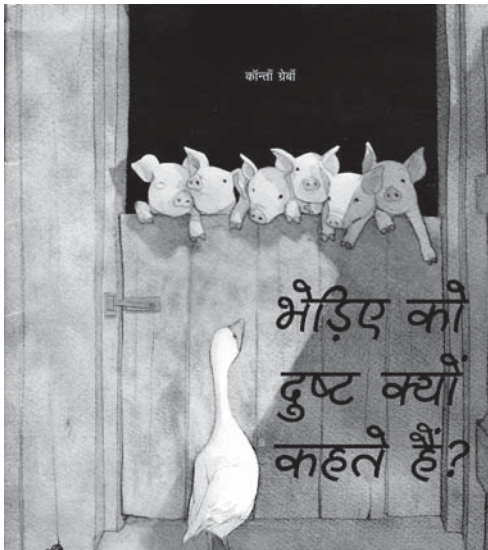 कॉन्ताँ ग्रेबाँ
भेड़िए को
दुष्ट क्यों
कहते हैं?